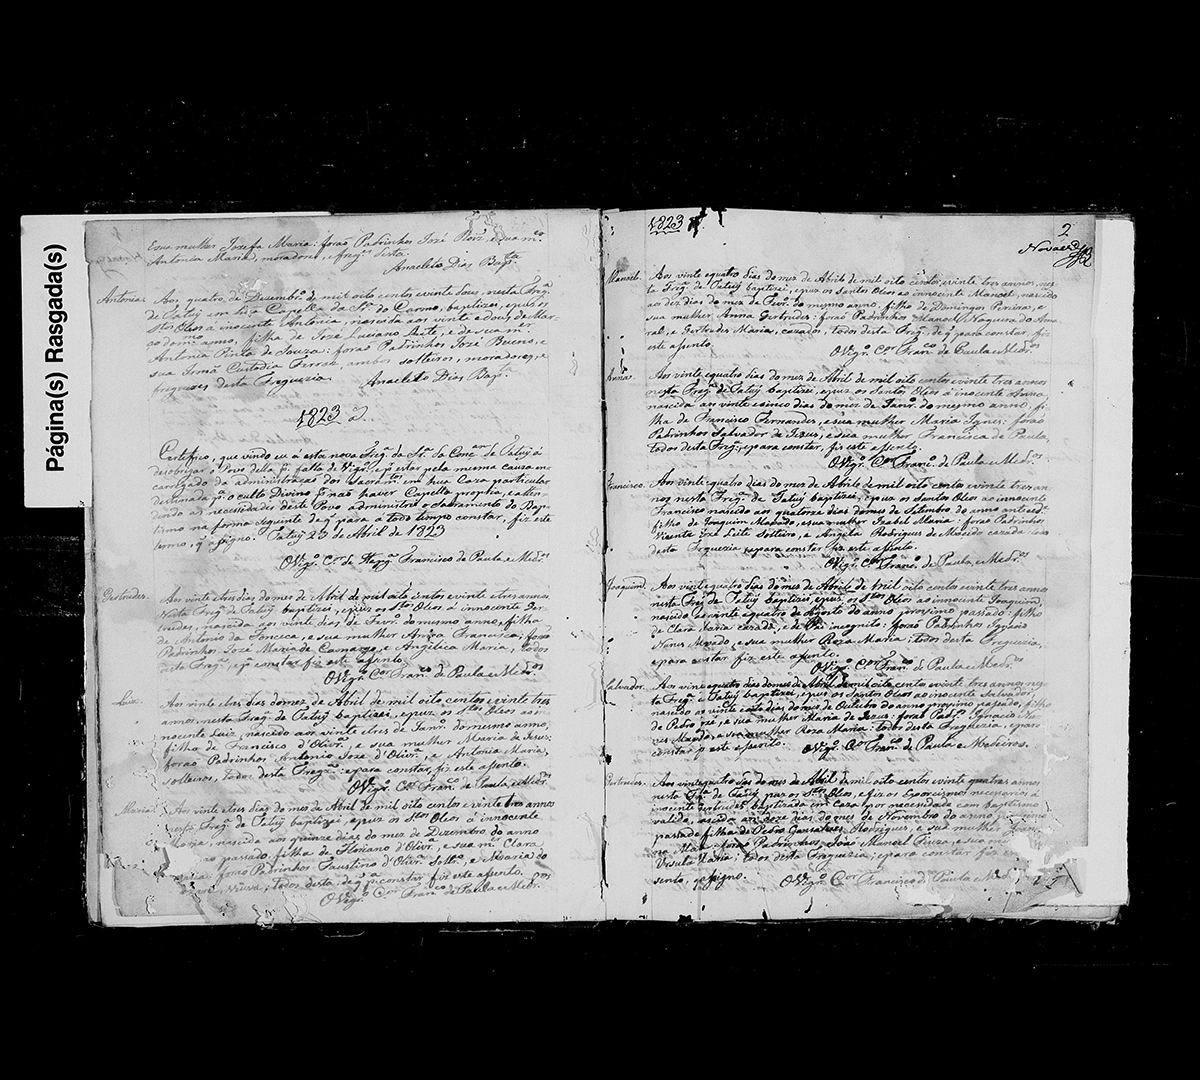 Página(s) Rasgada(s)
e sua mulher Josefa Maria: forão Padrinhos José
Antonia Maria, moradores,
Anacleto Dias Bapta
Antonia. Aos quatro de Dezembro de mil oito centos e vinte dous, nesta Freg.
de Tatuÿ em a Capella da Sra. do Carmo, baptizei, e puz os
Stos Oleos a inocente Antonia, nascida aos vinte e dous de Mar-
ço do mo anno, filha de José Luciano Leite, e de sua mer
Antonia Pinta de Souza: forão Padrinhos José Bueno, e
sua Irmã Custodia ambos solteiros, moradores, e
freguezes desta Freguezia. Anacleto Dias Bapt.
1823
Certifico, que vindo eu á esta nova Freg. de Sra. da Conc. de Tatuÿ á
desobrigar o Povo della pr. falta de Vigr.
carregado da administração dos Sacramtos em hua Caza particular
destinada pa o culto Divino não haver Capella propria, e atten-
dendo as necessidades deste Povo administrei o Sacramento do Bap-
tismo na forma seguinte de q para a todo tempo constar, fiz este
termo, q asigno. Tatuÿ 23 de Abril de 1823
O Vigr. Francisco de Paula e Medros
Gertrudes. Aos vinte e tres dias do mez de Abril de mil oito centos e vinte e tres annos
nesta Freg. de Tatuÿ baptizei, e puz os Stos Oleos á innocente Ger-
trudes, nascida aos vinte dias de Fevro do mesmo anno, filha
de Antonio da Fonceca, e sua mulher Anna Francisca, forão
Padrinhos José Maria de Camargo, e Angelica Maria, todos
desta Freg., e pa constar fiz este assento.
O Vigr. Cor Franco de Paula e Medros
Luiz. Aos vinte e tres dias do mez de Abril de mil oito centos e vinte tres
annos, nesta Freg. de Tatuÿ baptizei, e puz os Stos Oleos ao in-
nocente Luiz, nascido aos vinte e tres de Janro do mesmo anno,
filho de Francisco d'Olivra, e sua mulher Maria de Jesus:
forão Padrinhos Antonio José d'Olivra, e Antonia Maria,
solteiros, todos desta Freg.: e para constar, fiz este assento.
O Vigr. Cor Franco de Paula e Medros
Maria. Aos vinte e tres dias do mez de Abril de mil oito centos e vinte tres annos
nesta Freg. de Tatuÿ baptizei, e puz os Stos Oleos á innocente
Maria, nascida aos quinze dias do mez de Dezembro do anno
passado, filha de Floriano d'Olivra, e sua mr Clara
Maria: forão Padrinhos Faustino d'Olivra Soltro, e Maria do
viuva, todos desta, e pa constar fiz este assento.
O Vigr. Cor Franco de Paula e Medros
1823
2
Novaes
Manoel. Aos vinte e quatro dias do mez de Abril de mil oito centos e vinte tres annos, nes-
ta Freg. de Tatuÿ baptizei, e puz os Santos Oleos ao innocente Manoel, nascido
aos dez dias do mez de Fevro do mesmo anno, filho de Domingos Pereira, e
sua mulher Anna Gertrudes: forão Padrinhos Manoel Nogueira do Ama-
ral, e Gertrudes Maria, cazados, todos desta Freg. e pa constar, fiz
este assento.
O Vigr. Cor Franco de Paula e Medros
Anna. Aos vinte e quatro dias do mez de Abril de mil oito centos e vinte tres annos
nesta Freg. de Tatuÿ baptizei, e puz os Santos Oleos á inocente Anna
nascida aos vinte e cinco dias do mez de Janro do mesmo anno, fi-
lha de Francisco Fernandes, e sua mulher Maria Ignes: forão
Padrinhos Salvador de Jezus, e sua mulher Francisca de Paula,
todos desta Freg: e para constar, fiz este assento.
O Vigr. Cor Franco de Paula e Medr.
Francisco. Aos vinte e quatro dias do mez de Abril de mil oito centos e vinte tres an-
nos nesta Freg. de Tatuÿ baptizei, e puz os Santos Oleos ao innocente
Francisco nascido aos quatorze dias do mez de Setembro do anno anteced.
filho de Joaquim Machado, e sua mulher Izabel Maria: forão Padrinhos
Vicente Leite Solteiro, e Angela Rodrigues de Macedo cazada
desta Freguezia e para constar fiz este assento.
O Vigr. Cor Franco de Paula e Medros
Joaquim. Aos vinte e quatro dias do mez de Abril de mil oito centos e vinte tres annos
nesta Freg. de Tatuÿ baptizei, e puz os Stos Oleos ao innocente Joaquim,
nascido de vinte e quatro de Agosto do anno proximo passado: filho
de Clara Maria cazada, e de Pai incognito: forão Padrinhos Ignacio
Nunes, e sua mulher Roza Maria: todos desta Freguezia,
e para constar fiz este assento.
O Vigr. Cor Franco de Paula e Medros
Salvador. Aos vinte e quatro dias do mez de Abril de mil oito centos e vinte tres annos nes-
ta Freg. de Tatuÿ baptizei, e puz os Santos Oleos ao inocente Salvador,
nascido ao vinte e oito dias do mez de Outubro do anno proximo passado, filho
de Pedro e sua mulher Maria de Jezus: forão Padr. Ignacio Nu-
nes, e sua mulher Roza Maria: todos desta Freguezia, e para
constar fiz este assento. O Vigr. Cor Franco de Paula e Medeiros.
Gertrudes. Aos vinte e quatro dias do mez de Abril de mil oito centos e vinte quatro annos
nesta Freg. de Tatuÿ puz os Stos Oleos, e fiz os Exorcismos necesarios á
inocente Gertrudes baptizada em caza por necesidade com baptismo
valido, nascida aos doze dias do mez de Novembro do anno proximo
passado filha de Pedro Gonsalves Rodrigues, e sua mulher
Maria: forão Padrinhos João Manoel e sua
Ursula Maria: todos desta Freguezia; e para constar fiz es-
te asento, q asigno. O Vigr. Cor Francisco de Paula e Med